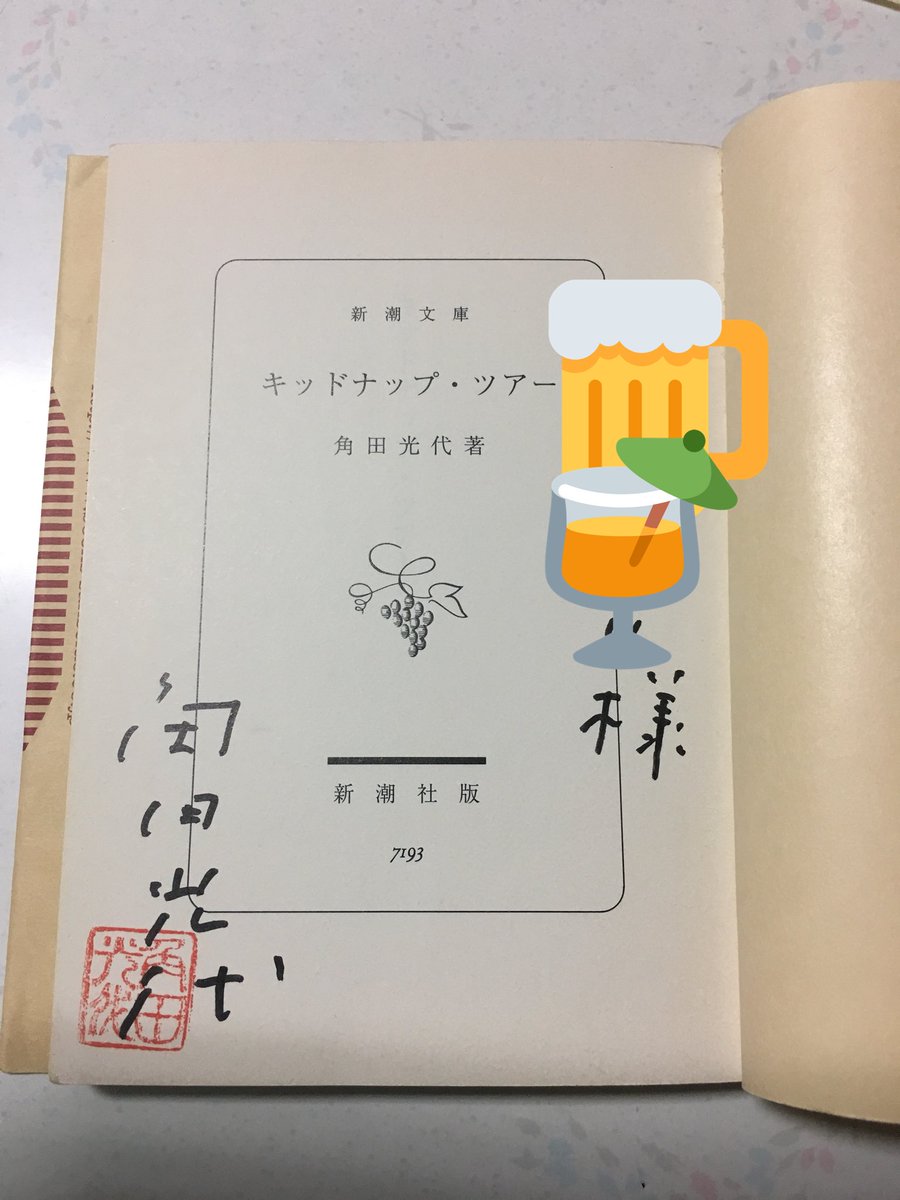 新潮文庫
キッドナップ・ツアー
角田光代著
新潮社版
7193
様
角田光代
角田光代